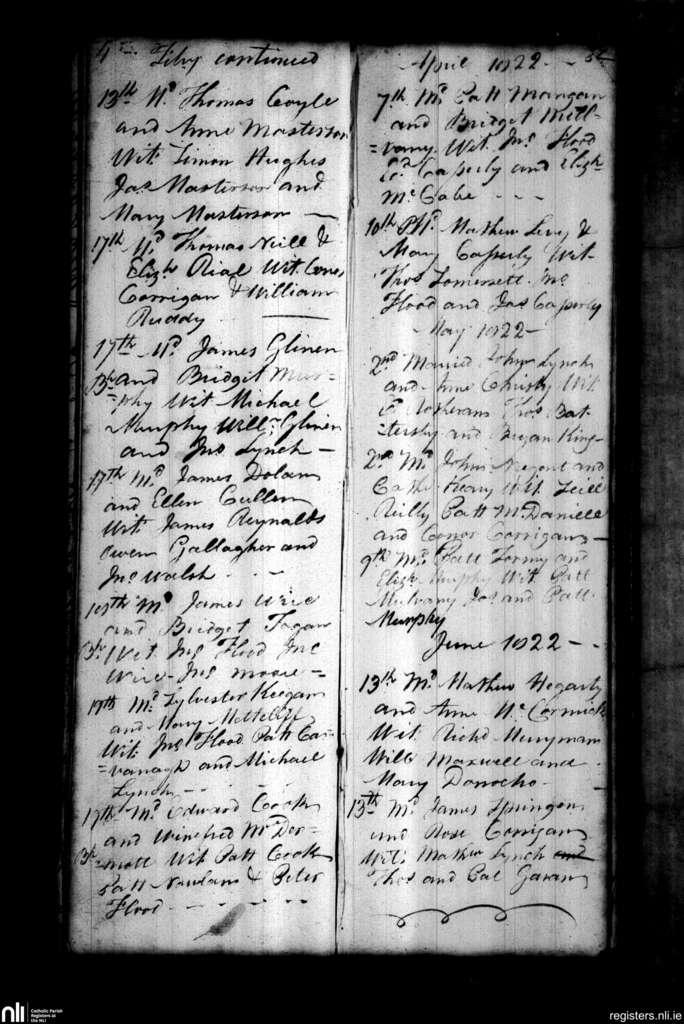 Feby continued
13th Md Thomas Coyle
and Anne Masterson
Wit Simon Hughes
Jas Masterson and
Mary Masterson
17th Md Thomas Neill &
Elizh Rial Wit
Corrigan & William
Ruddy
17th Md James Glinen
and Bridget Mur=
=phy Wit Michael
Murphy Willm Glinen
and Jno Lynch
17th Md James Dolan
and Ellen Cullen
Wit James Reynalds
Owen Gallagher and
Jno Walsh
Md James Wire
and Bridget Fagan
Wit Jno Flood Jno
Wire Jno Moore
17th Md Sylvester Keegan
and Mary
Wit Jno Flood Patt Ca=
=vanagh and Michael
Lynch
17th Md Edward Cook
and Winefred McDer=
=mott Wit Patt Cook
Patt Nowlan & Peter
Flood
April 1822
7th Md Patt Mangan
and Bridget Mull=
=vany Wit Jno Flood
Caperly and Elizh
McCabe
10th Md Mathew Levy &
Mary Caperly Wit
Thos Somersett Jno
Flood and Jas Caperly
May 1822
2nd Married John Lynch
and Anne Christy Wit
Thos Bat=
=tersby and King
2nd Md John and
Cathe Heavy Wit
Reilly Patt McDaniell
and Connor Corrigan
9th Md Patt and
Elizh Murphy Wit Patt
Mulvany Jas and Patt
Murphy
June 1822
13th Md Mathew Hegarty
and Anne McCormick
Wit Richd Merryman
Will Maxwell and
Mary Donocho
13th Md James
and Rose Corrigan
Wit Mathew Lynch and
Thos and Cat Gavan
nli
Catholic Parish
Registers at
the NLI
registers.nli.ie